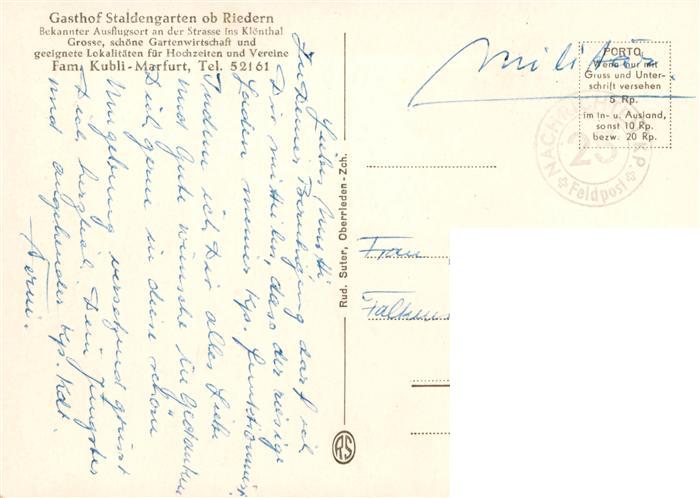 Gasthof Staldengarten ob Riedern
Bekannter Ausflugsort an der Strasse ins Klönthal
Grosse, schöne Gartenwirtschaft und
geeignete Lokalitäten für Hochzeiten und Vereine
Fam. Kubli-Marfurt, Tel. 52161
Liebes Mutti
Zu Deiner Beruhigung darf ich
Dir mitteilen, dass der riesige
Laden meiner Kp. funktioniert.
Indem ich Dir alles Liebe
und Gute wünsche in Gedanken
Dich gerne in diese schöne
Umgebung versetzend grüsst
Dich herzlich Dein jüngster
und angehender Kp. Kdt.
Militär.
PORTO
Wenn nur mit
Gruss und Unter-
schrift versehen
5 Rp.
im In- u. Ausland,
sonst 10 Rp.
bezw. 20 Rp.
25
Feldpost
Frau
Rud. Suter, Oberrieden-Zch.
RS